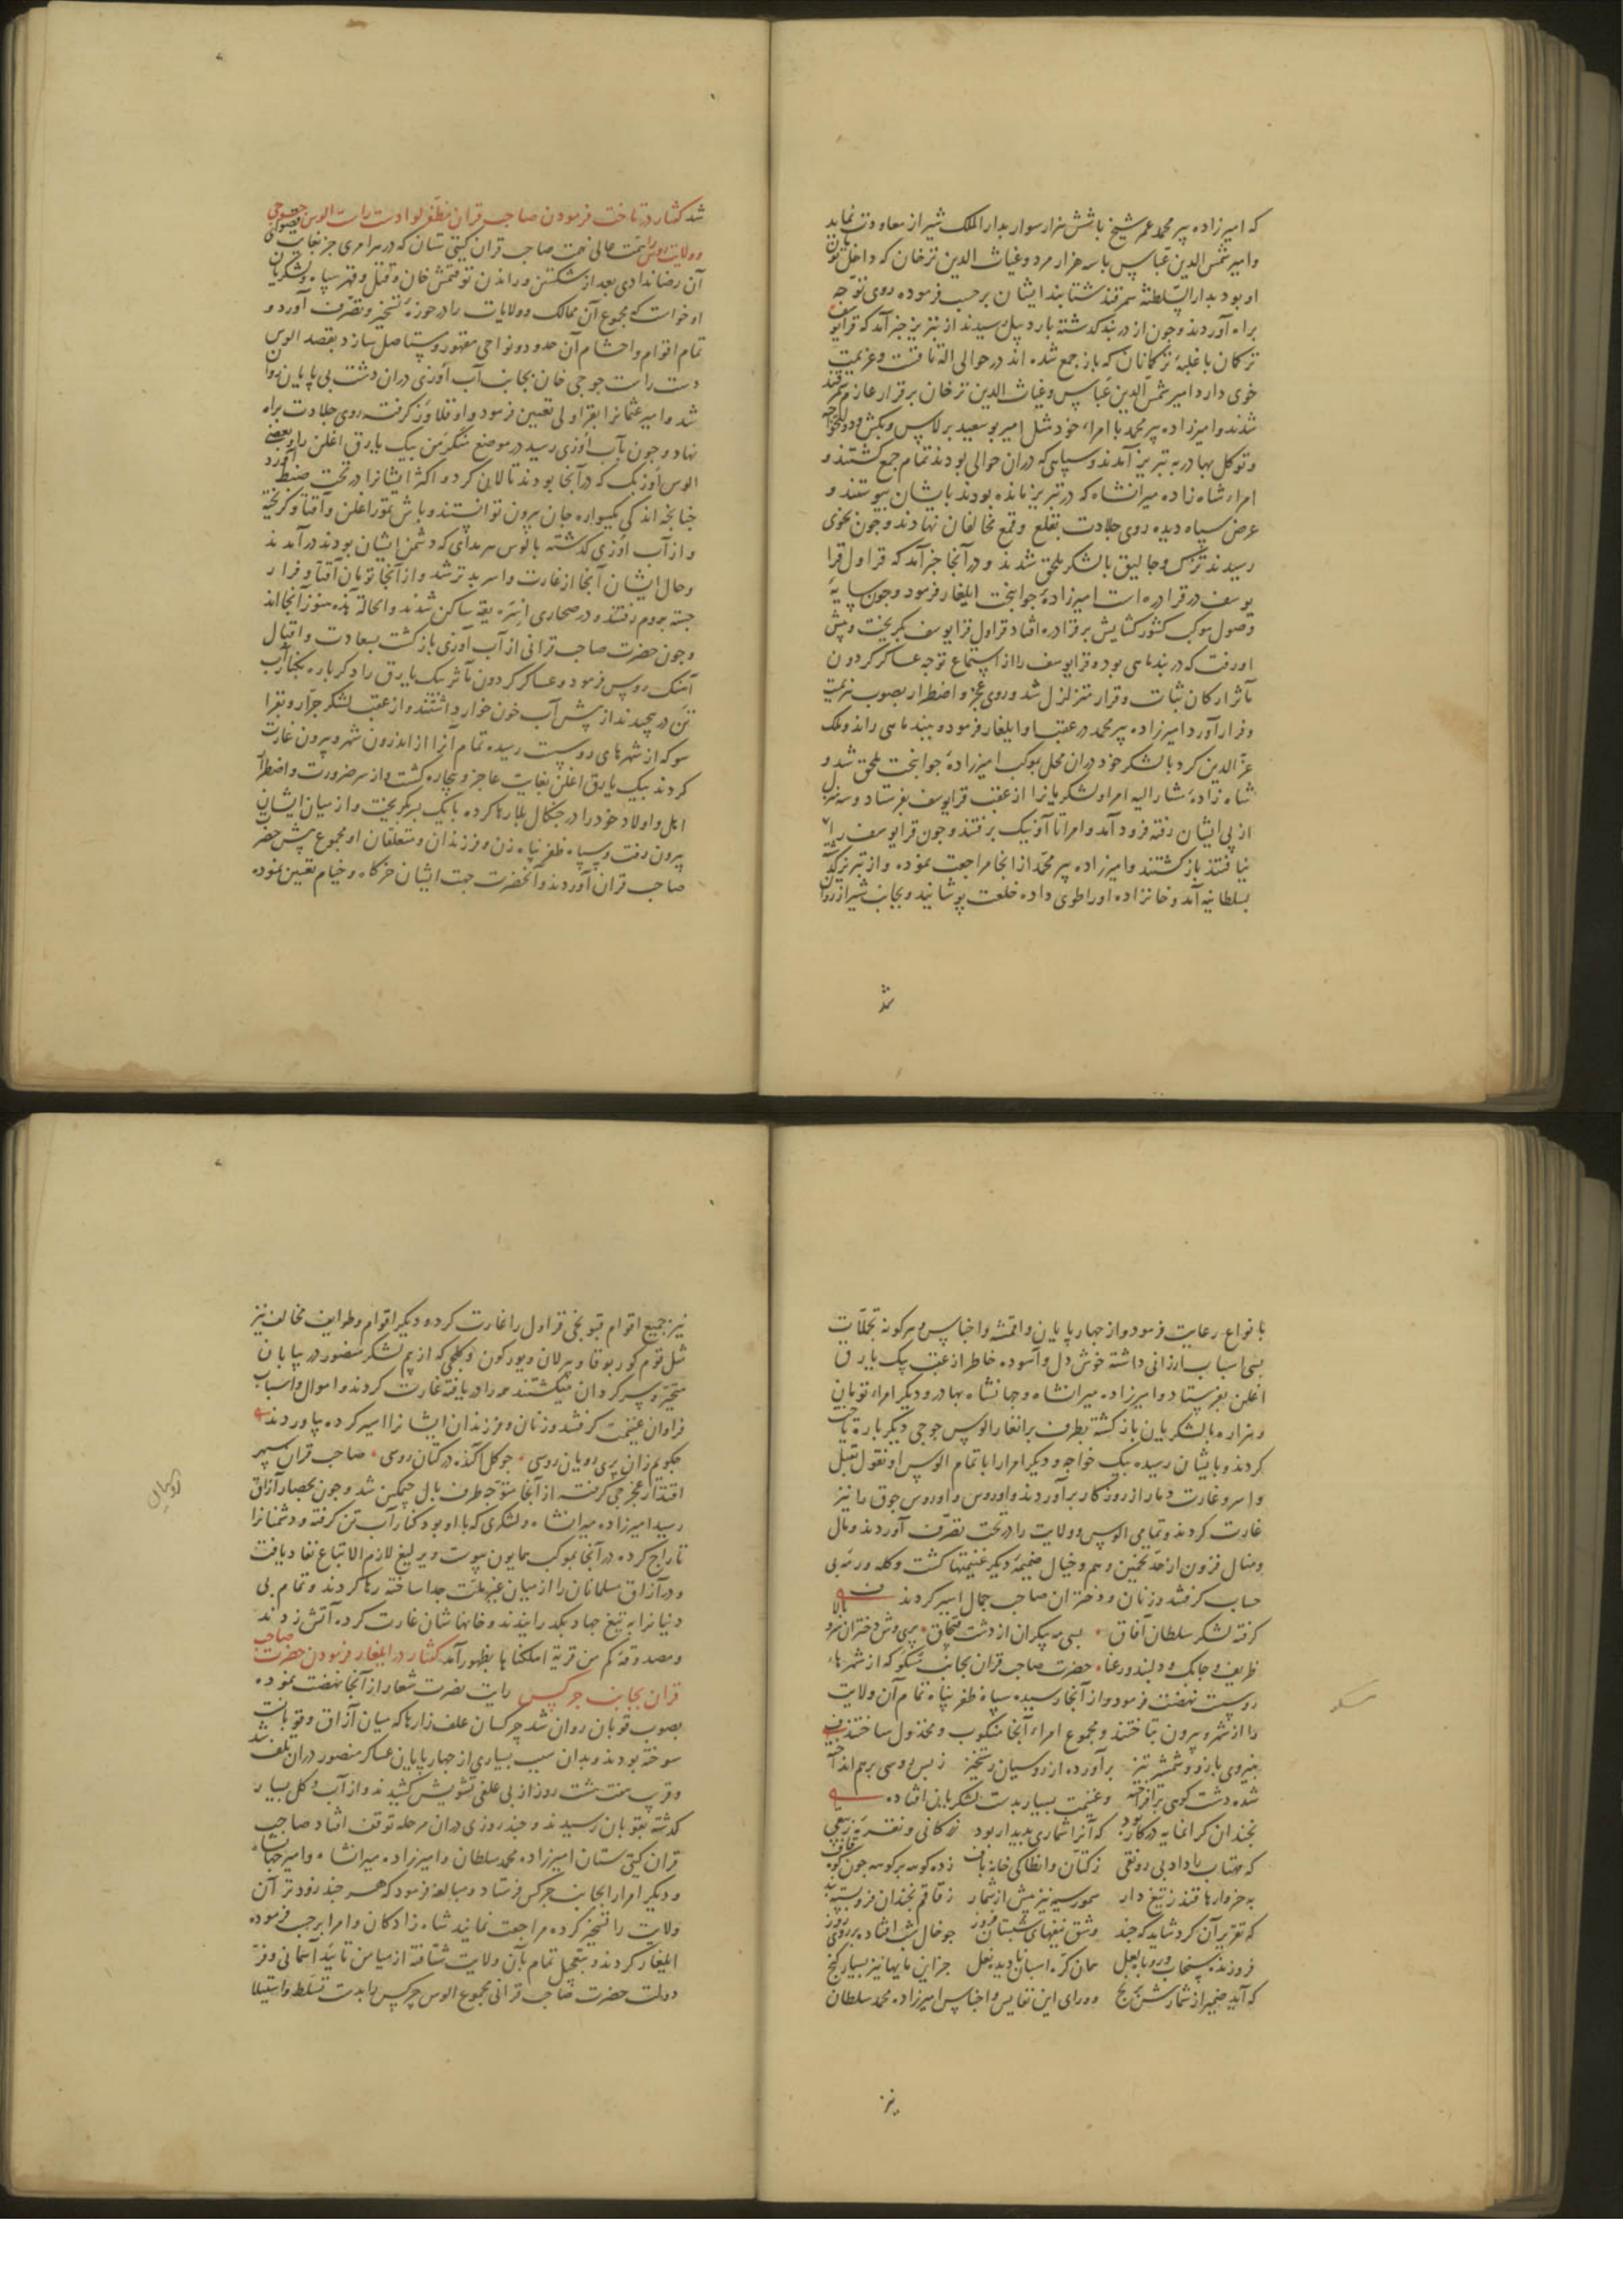 که امیرزاده پیر محمد عمر شیخ باشش هزار سوار بدار الملک شیراز معاودت نماید
وامیر شمس الدین عباس باسه هزار مرد وغیاث الدین ترخان که داخل تومان
او بود بدار السلطنه سمرقند شتابند ایشان برحسب فرموده روی توجه
براه آوردند وچون از دربند کذشته باردبیل رسیدند از تبریز خبر آمد که قرایوسف
ترکمان باغلبۀ ترکمانان که باز جمع شده اند در حوالی الاتا قست وعزیمت
خوی دارد امیر شمس الدین عباس وغیاث الدین ترخان برقرار عازم سمرقند
شدند وامیرزاده پیر محمد با امراء خود مثل امیر بو سعید برلاس وبکش ودولتخواجه
وتوکل بهادر به تبریز آمدند وسپاهی که دران حوالی بودند تمام جمع کشتند و
امراء شاه زاده میرانشاه که در تبریز مانده بودند بایشان پیوستند و
عرض سپاه دیده روی جلادت بقلع وقمع مخالفان نهادند وچون بخوی
رسیدند نزکس وجالیق بالشکر ملحق شدند ودر آنجا خبر آمد که قراول قرا
یوسف در قرا دره است امیرزادۀ جوانبخت ایلغار فرمود وچون سایۀ
وصول موکب کشور کشایش بر قرا دره افتاد قراول قرا یوسف بکریخت وپیش
او رفت که در بند ماهی بود وقرا یوسف را از استماع توجه عساکر کردون
مآثر ارکان ثبات وقرار متزلزل شد وروی عجز واضطرار بصوب هزیمت
وفرار آورد امیرزاده پیر محمد در عقب او ایلغار فرمود وببند ماهی راند وملک
عز الدین کرد بالشکر خود دران محل بموکب امیرزادۀ جوانبخت ملحق شد و
شاه زادۀ مشار الیه امرا ولشکریانرا از عقب قرا یوسف بفرستاد وسه منزل
از پی ایشان رفته فرود آمد وامرا تا آونیک برفتند وچون قرا یوسف را
نیافتند بازکشتند وامیرزاده پیر محمد از انجا مراجعت نموده واز تبریز کذشته
بسلطانیه آمد وخانزاده اورا طوی داده خلعت پوشانید وبجانب شیراز روان
شد
شد کفتار در تاخت فرمودن صاحب قران مظفر لوا دست راست الوس جوجی
وولایت روس را همت عالی نهمت صاحب قران کیتی ستان که در هر امری جز بغایت قصوای
آن رضا ندادی بعد از شکستن وراندن توقتمش خان وقتل وقهر سپاه ولشکریان
او خواست که مجموع آن ممالک وولایات را در حوزۀ تسخیر وتصرف آورد و
تمام اقوام واحشام آن حدود ونواحی مقهور ومستاصل سازد بقصد الوس
دست راست جوجی خان بجانب آب اوزی دران دشت بی پایان روان
شد وامیر عثمانرا بقراولی تعیین فرمود واو قلاوز کرفته روی جلادت براه
نهاد وچون بآب اوزی رسید در موضع منکرمن بیک یارق اغلن را وبعضی
الوس اوزبک که در آنجا بودند تالان کرد واکثر ایشانرا در تحت ضبط آورد
چنانچه اندکی یکسواره جان بیرون توانستند وباش تمور اغلن وآقتاو کریخته
واز آب اوزی کذشته بالوس هرمدای که دشمن ایشان بودند درآمدند
وحال ایشان آنجا از غارت واسر بدتر شد واز آنجا تومان آقتاو فرار
جسته بروم رفتند ودر صحاری ایسره یقه ساکن شدند والحالة هذه هنوز آنجا اند
وچون حضرت صاحب قرانی از آب اوزی بازکشت بسعادت واقبال
آهنک روس فرمود وعساکر کردون مآثر بیک یارق را دکرباره بکنار آب
تن در پیچیدند از پیش آب خون خوار داشتند واز عقب لشکر جرار وبقرا
سو که از شهرهای روس است رسیده تمام آنرا از اندرون شهر وبیرون غارت
کردند بیک یارق اغلن بغایت عاجز وبیچاره کشت واز سر ضرورت واضطرار
اهل واولاد خود را در چنکال بلا رها کرده بایک پسر بکریخت واز میان ایشان
بیرون رفت وسپاه ظفر پناه زن وفرزندان ومتعلقان او مجموع پیش حضرت
صاحب قران آوردند وآنحضرت جهت ایشان خرکاه وخیام تعیین نموده
بانواع رعایت فرمود واز چهارپایان واقمشه واجناس وهرکونه تجملات
بسی اسباب ارزانی داشته خوش دل وآسوده خاطر از عقب بیک یارق
اغلن بفرستاد وامیرزاده میرانشاه وجهانشاه بهادر ودیکر امراء تومان
وهزاره بالشکریان بازکشته بطرف برانغار الوس جوجی دیکر باره تاخت
کردند وبایشان رسیده بیک خواجه ودیکر امرا را باتمام الوس او نقول بقتل
واسر وغارت دمار از روزکار برآوردند واوروس واوروس جوق را نیز
غارت کردند وتمامی الوس وولایت را در تحت تصرف آوردند ومال
ومنال فزون از حد تخمین وهم وخیال ضمیمۀ دیکر غنیمتها کشت وکله ورمه بی
حساب کرفتند وزنان ودختران صاحب جمال اسیر کردند
کرفته لشکر سلطان آفاق بسی مه پیکران از دشت قبچاق پری وش دختران سرو بالا
ظریف وچابک ودلبند ورعنا حضرت صاحب قران بجانب مسکو که از شهرهاء
روس است نهضت فرمود واز آنجا رسیده سپاه ظفر پناه تمام آن ولایت
را از شهر وبیرون بتاختند ومجموع امراء آنجا منکوب ومخذول ساختند
بنیروی بازو وشمشیر تیز برآورده از روسیان رستخیز ز بس روسی برهم انداخته
شده دشت کوهی برافراخته وغنیمت بسیار بدست لشکریان افتاده
بچندان کرانمایه درکار بود که آنرا شماری پدیدار بود زر کانی ونقره
که مهتاب را داد بی رونقی ز کتان وانطاکی خانه باف زده کوهه بر کوهه چون کوه قاف
به خروارها قندز تیغ دار سمور سیه نیز بیش از شمار ز قاقم بچندان فروبسته بند
که تقریر آن کرد شاید که چند وشق نیفهای شبستان فروز چو خال شب افتاده بر روی روز
فروزنده سنجاب وروباه لعل همان کرۀ اسبان نادیده نعل جز این مایها نیز بسیار کنج
که آید ضمیر از شمارش برنج وورای این نفایس واجناس امیرزاده محمد سلطان
مسکو
نیز
نیز جمیع اقوام قبونجی قراول را غارت کرد ودیکر اقوام وطوایف مخالف نیز
مثل قوم کوربوقا وبیرلان ویورکون وکلچی که از بیم لشکر منصور در بیابان
متحیر وسرکردان میکشتند همه را دریافته غارت کردند واموال واسباب
فراوان غنیمت کرفتند وزنان وفرزندان ایشانرا اسیر کرده بیاوردند
چکویم زان پری رویان روسی چو کل آکنده در کتان روسی صاحب قران سپهر
اقتدار مخرجی کرفته از آنجا متوجه طرف بال چمکن شد وچون بحصار آزاق
رسید امیرزاده میرانشاه ولشکری که با او بود کنار آب تن کرفته ودشمنانرا
تاراج کرده در آنجا بموکب همایون پیوست ویرلیغ لازم الاتباع نفاذ یافت
ودر آزاق مسلمانان را از میان غیر ملت جدا ساخته رها کردند وتمام بی
دینانرا به تیغ جهاد بکذرانیدند وخانهاشان غارت کرده آتش زدند
ومصدوقۀ کم من قریة اهلکناها بظهور آمد کفتار در ایلغار فرمودن حضرت صاحب
قران بجانب چرکس رایت نصرت شعار از آنجا نهضت نموده
بصوب قوبان روان شد چرکسان علف زارها که میان آزاق وقوبانست
سوخته بودند وبدان سبب بسیاری از چهارپایان عساکر منصور دران تلف شد
وقرب هفت هشت روز از بی علفی تشویش کشیدند واز آب وکل بسیار
کذشته بقوبان رسیدند وچند روزی دران مرحله توقف افتاد صاحب
قران کیتی ستان امیرزاده محمد سلطان وامیرزاده میرانشاه وامیر جهانشاه
ودیکر امرا را بجانب چرکس فرستاد ومبالغه فرمود که هر چند زودتر آن
ولایت را تسخیر کرده مراجعت نمایند شاه زادکان وامرا برحسب فرموده
ایلغار کردند وبتعجیل تمام بآن ولایت شتافته از میامن تایید آسمانی وفر
دولت حضرت صاحب قرانی مجموع الوس چرکس را بدست تسلط واستیلا